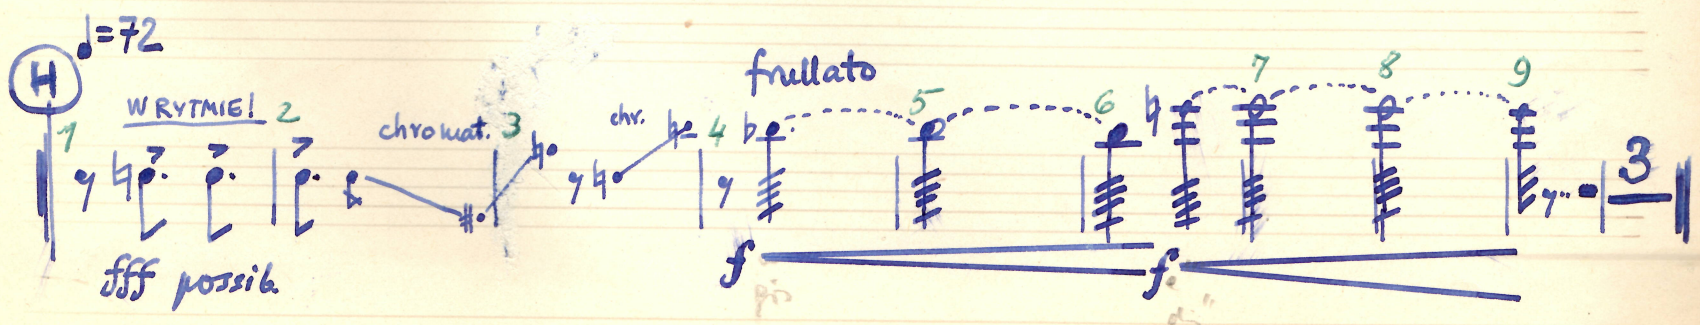 H ♩=72
1 W RYTMIE! 2 chromat. 3 chr. 4 frullato 5 6 7 8 9
3
fff possib. f f